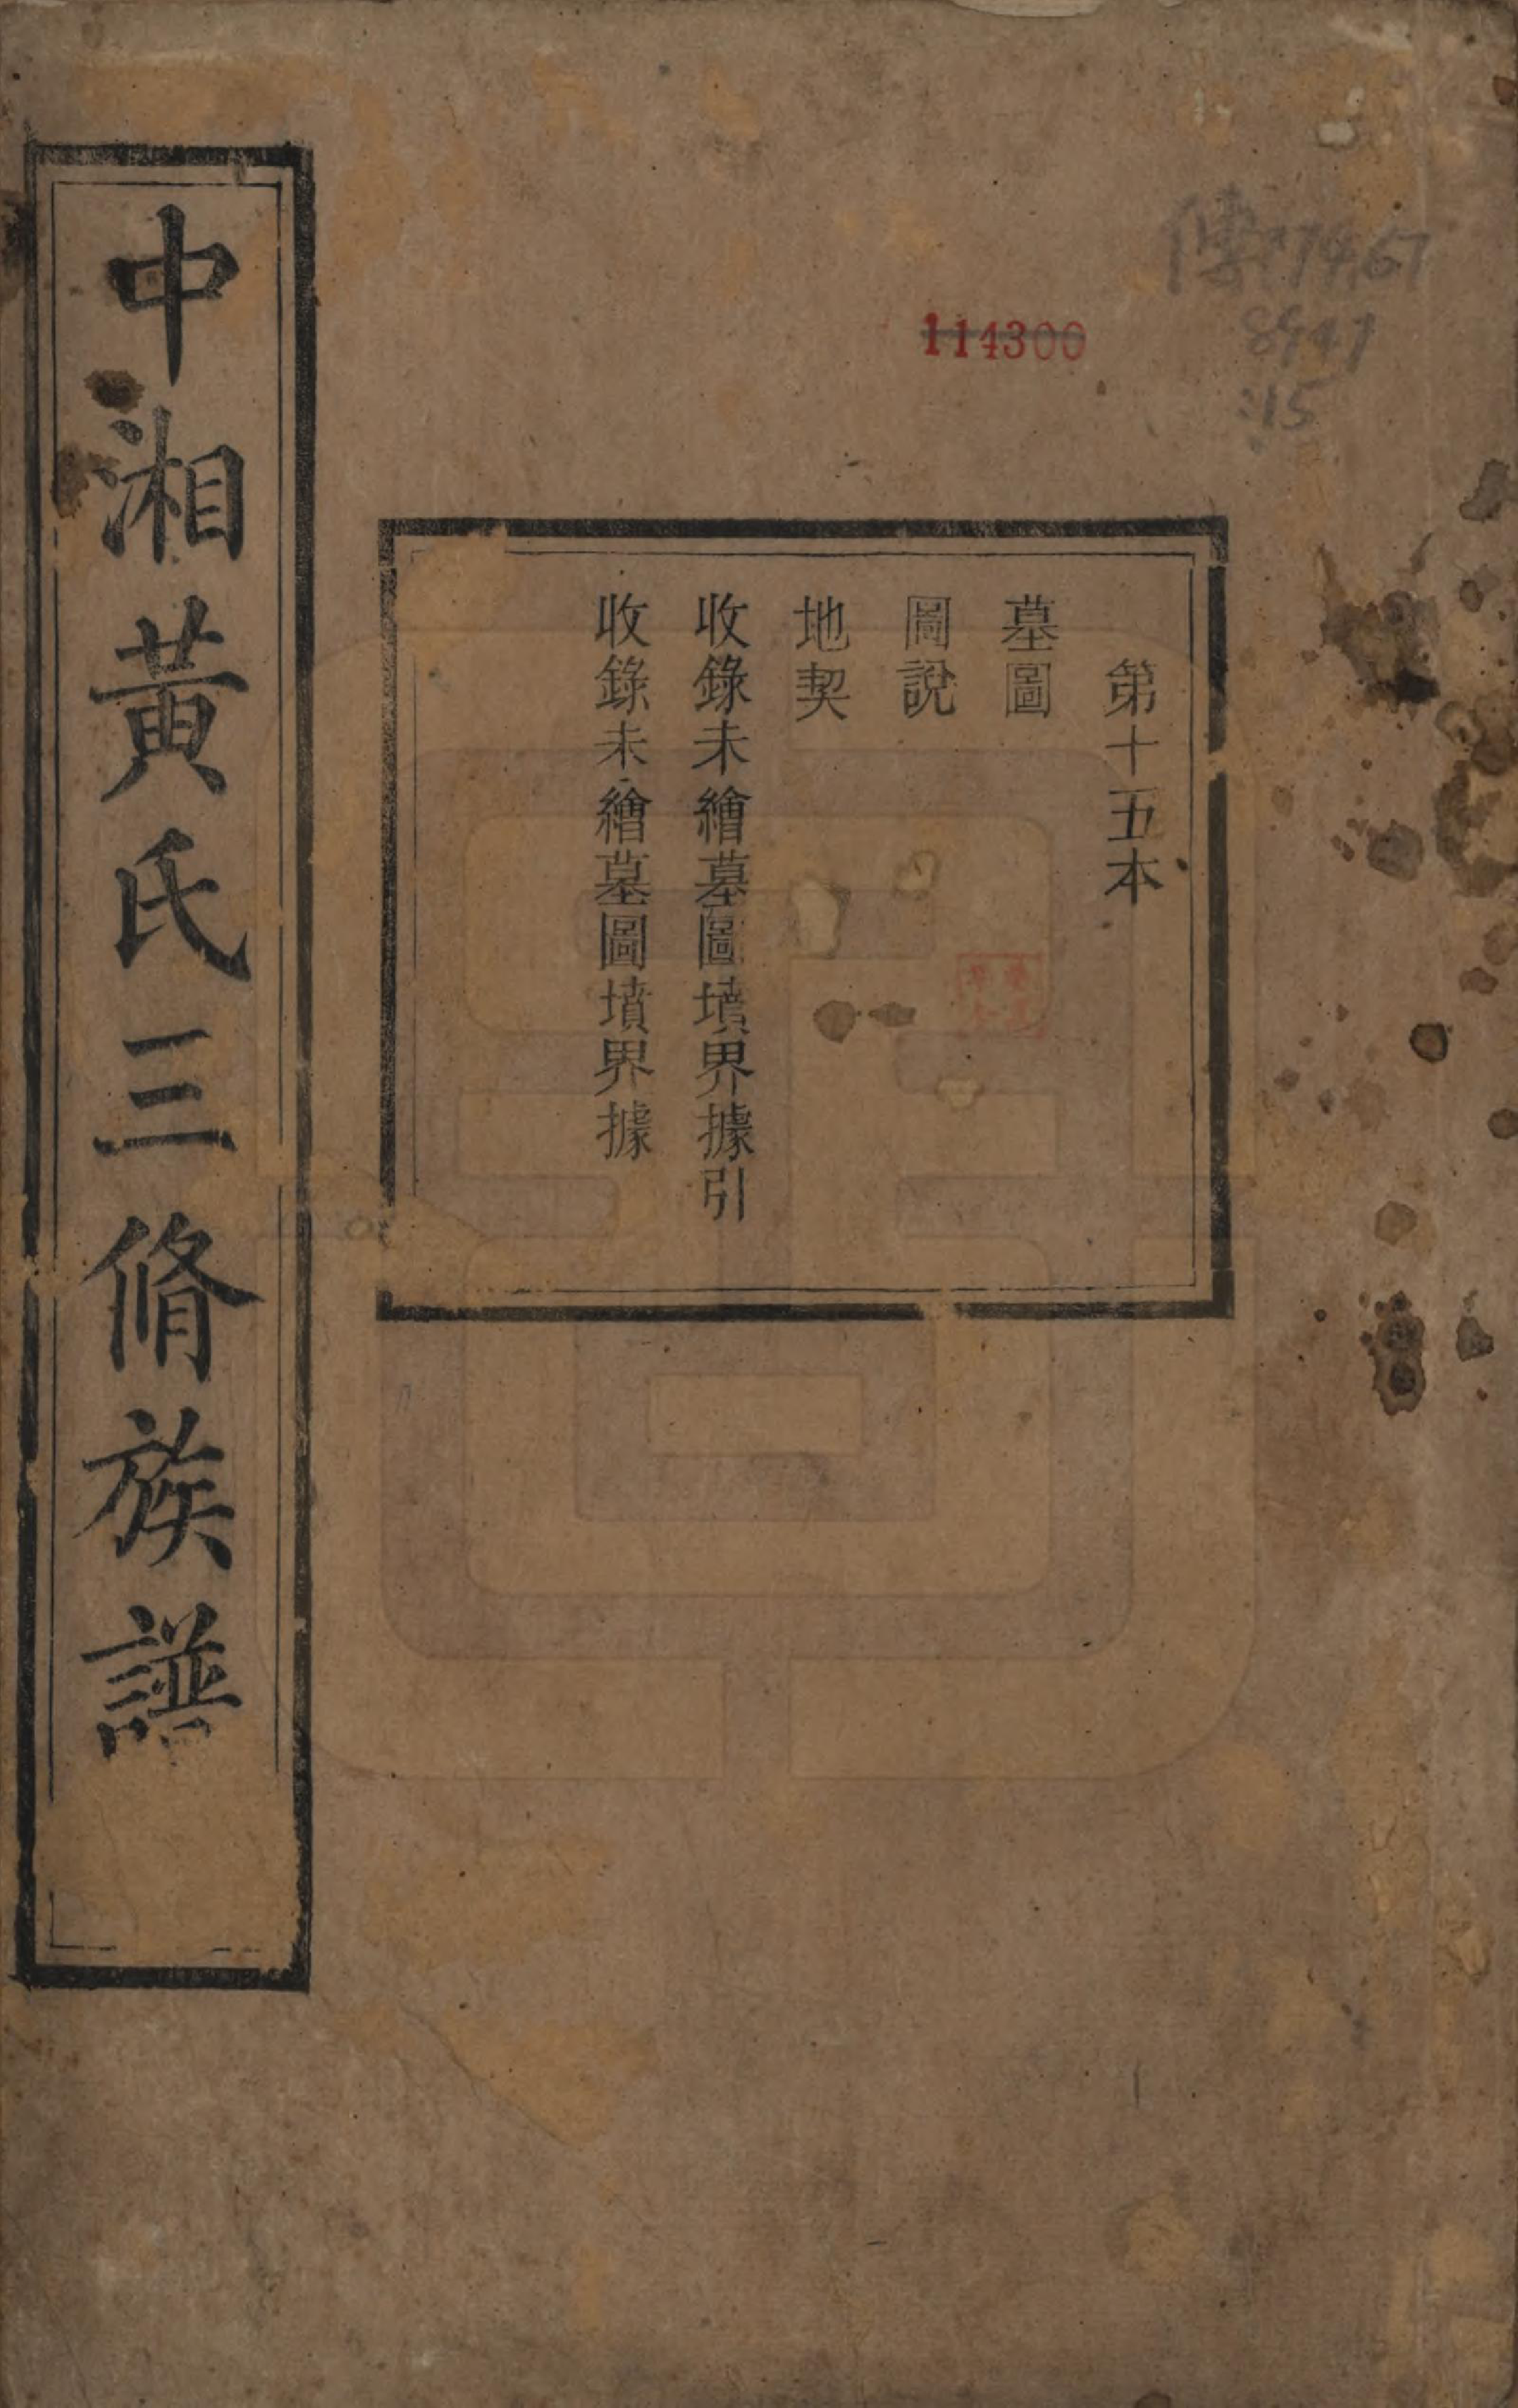 中湘黃氏三脩族譜
第十五本
墓圖
圖說
地契
收錄未繪墓圖墳界據引
收錄未繪墓圖墳界據
114300
傳774.67
8947
:15